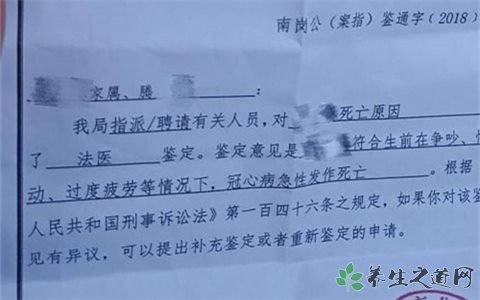 南岗公（案指）鉴通字（2018）
家属、滕：
我局指派/聘请有关人员，对死亡原因
了 法医 鉴定。鉴定意见是符合生前在争吵、
动、过度疲劳等情况下，冠心病急性发作死亡。根据
人民共和国刑事诉讼法》第一百四十六条之规定，如果你对该鉴
见有异议，可以提出补充鉴定或者重新鉴定的申请。
养生之道网